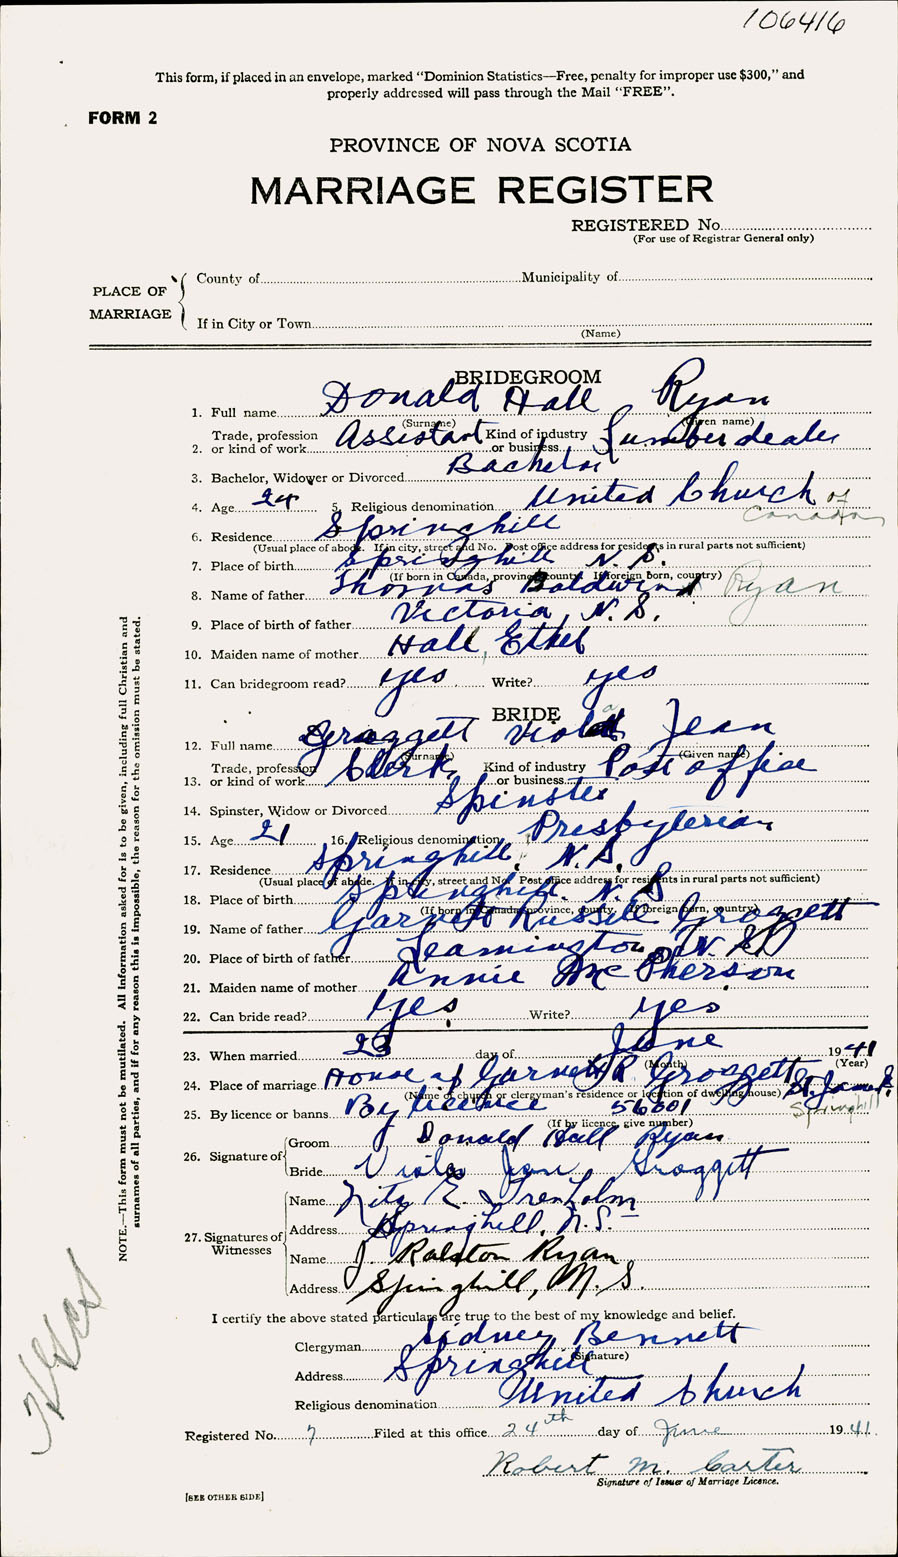 106416
This form, if placed in an envelope, marked "Dominion Statistics—Free, penalty for improper use $300," and
properly addressed will pass through the Mail "FREE".
FORM 2
PROVINCE OF NOVA SCOTIA
MARRIAGE REGISTER
REGISTERED No.
(For use of Registrar General only)
PLACE OF MARRIAGE
County of Municipality of
If in City or Town
(Name)
BRIDEGROOM
1. Full name Donald Hall Ryan
(Surname) (Given name)
2. Trade, profession or kind of work Assistant Kind of industry or business Lumber dealer
3. Bachelor, Widower or Divorced Bachelor
4. Age 24 5. Religious denomination United Church of Canada
6. Residence Springhill
(Usual place of abode. If in city, street and No. Post office address for residents in rural parts not sufficient)
7. Place of birth Springhill N. S.
(If born in Canada, province, county. If foreign born, country)
8. Name of father Thomas Baldwin Ryan
9. Place of birth of father Victoria, N. S.
10. Maiden name of mother Hall, Ethel
11. Can bridegroom read? yes Write? yes
BRIDE
12. Full name Groggett Viola Jean
(Surname) (Given name)
13. Trade, profession or kind of work Clerk Kind of industry or business Post office
14. Spinster, Widow or Divorced Spinster
15. Age 21 16. Religious denomination Presbyterian
17. Residence Springhill, N. S.
(Usual place of abode. If in city, street and No. Post office address for residents in rural parts not sufficient)
18. Place of birth Springhill N. S
(If born in Canada, province, county. If foreign born, country)
19. Name of father Garnett Russell Groggett
20. Place of birth of father Leamington N. S
21. Maiden name of mother Annie McPherson
22. Can bride read? Yes Write? yes
23. When married 23 day of June 1941
(Month) (Year)
24. Place of marriage House of Garnett R Groggett St. James Springhill
(Name of church or clergyman's residence or location of dwelling house)
25. By licence or banns By licence 56601
(If by licence, give number)
26. Signature of Groom Donald Hall Ryan
Bride Viola Jean Groggett
27. Signatures of Witnesses
Name E. Trenholm
Address Springhill, N.S.
Name J. Ralston Ryan
Address Springhill, N. S.
I certify the above stated particulars are true to the best of my knowledge and belief.
Clergyman Sidney Bennett
(Signature)
Address Springhill
Religious denomination United Church
Registered No. 7 Filed at this office 24th day of June 1941
Robert M. Carter
Signature of Issuer of Marriage Licence.
[SEE OTHER SIDE]
NOTE.—This form must not be mutilated. All Information asked for is to be given, including full Christian and
surnames of all parties, and if for any reason this is impossible, the reason for the omission must be stated.